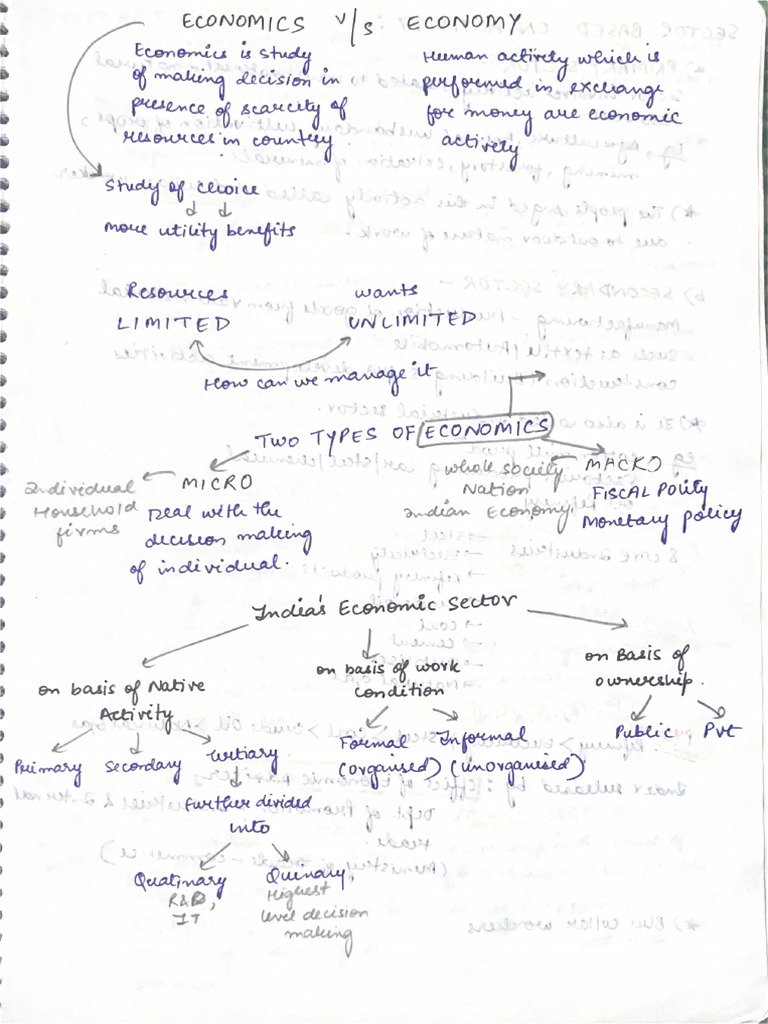 ECONOMICS v/s ECONOMY
Economics is study
of making decision in
presence of scarcity of
resources in country
Human activity which is
performed in exchange
for money are economic
activety
Study of choice
more utility benefits
Resources wants
LIMITED UNLIMITED
How can we manage it
TWO TYPES OF ECONOMICS
MICRO
Individual
Household
firms
Deal with the
decision making
of individual.
whole society
Nation
Indian Economy
MACKO
FISCAL Polity
Monetary policy
India's Economic Sector
on basis of Native
Activity
on basis of work
condition
on Basis of
ownership.
Primary Secondary Tertiary
Formal Informal
(organised) (unorganised)
Public Pvt
further divided
into
Quatinary
R&D,
IT
Quinary,
Highest
level decision
making